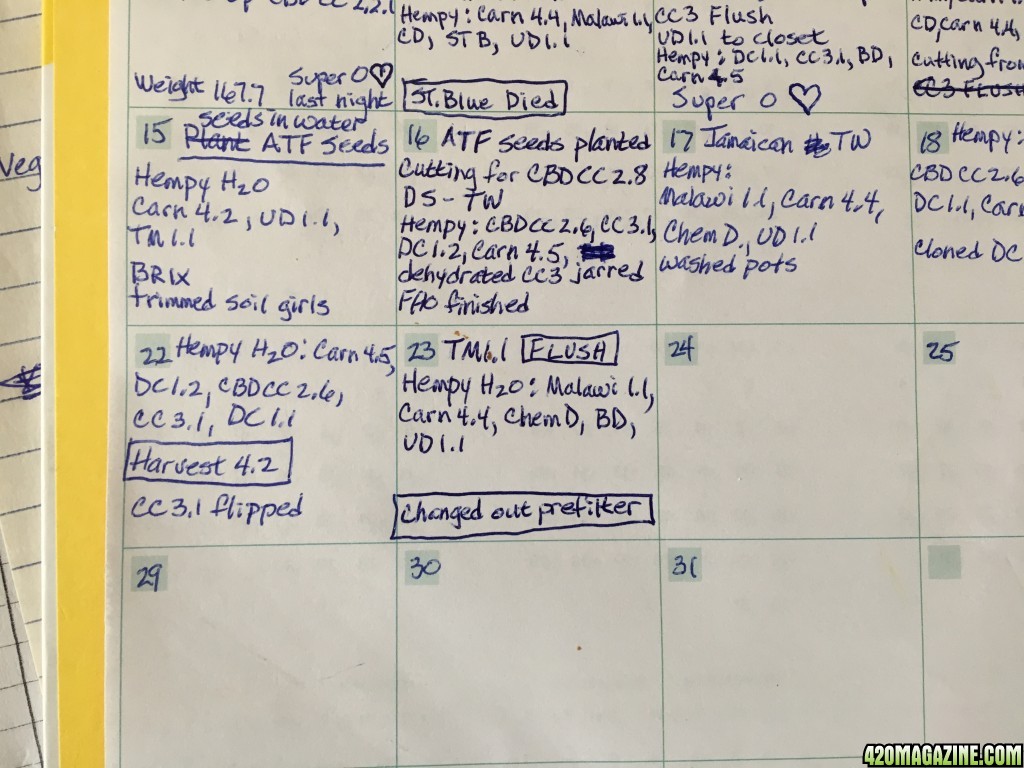 CBD CC 2.2.1
Weight 167.7
Super O♡
last night
Hempy: Carn 4.4, Malawi 1.1,
CD, STB, UD1.1
ST. Blue Died
CC3 Flush
UD1.1 to closet
Hempy: DC1.1, CC3.1, BD,
Carn 4.5
Super O ♡
CD, Carn 4.4,
Cutting from
CC3 FLUSH
15 seeds in water
Plant ATF Seeds
Hempy H2O
Carn 4.2, UD1.1,
TM1.1
BRIX
trimmed soil girls
16 ATF seeds planted
Cutting for CBDCC 2.8
DS-TW
Hempy: CBDCC2.6, CC3.1,
DC1.2, Carn 4.5,
dehydrated CC3 jarred
FAO finished
17 Jamaican TW
Hempy:
Malawi 1.1, Carn 4.4,
Chem D., UD1.1
washed pots
18 Hempy:
CBDCC2.6
DC1.1, Carn
Cloned DC
22 Hempy H2O: Carn 4.5,
DC1.2, CBDCC2.6,
CC3.1, DC1.1
Harvest 4.2
CC3.1 flipped
23 TM1.1 FLUSH
Hempy H2O: Malawi 1.1,
Carn 4.4, ChemD, BD,
UD1.1
Changed out prefilter
24
25
29
30
31
Veg
420MAGAZINE.COM